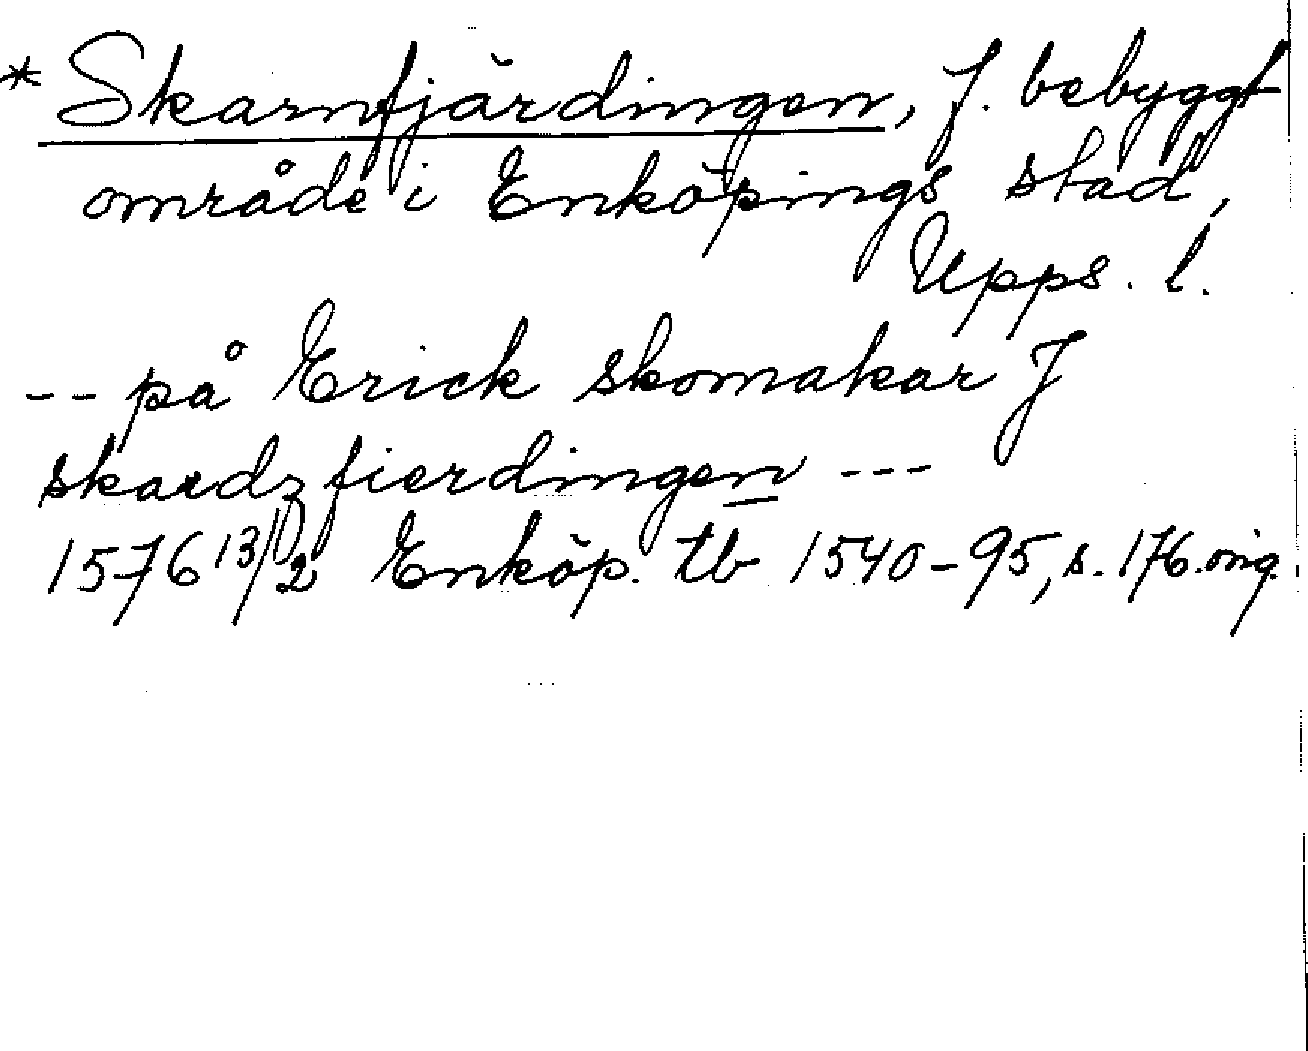 * Skarnfjärdingen, f. bebyggt
område i Enköpings stad,
Upps. l.
-- på Erick skomakar J
skardzfierdingen ---
1576 13/2 Enköp. tb 1540-95, s. 176. orig.